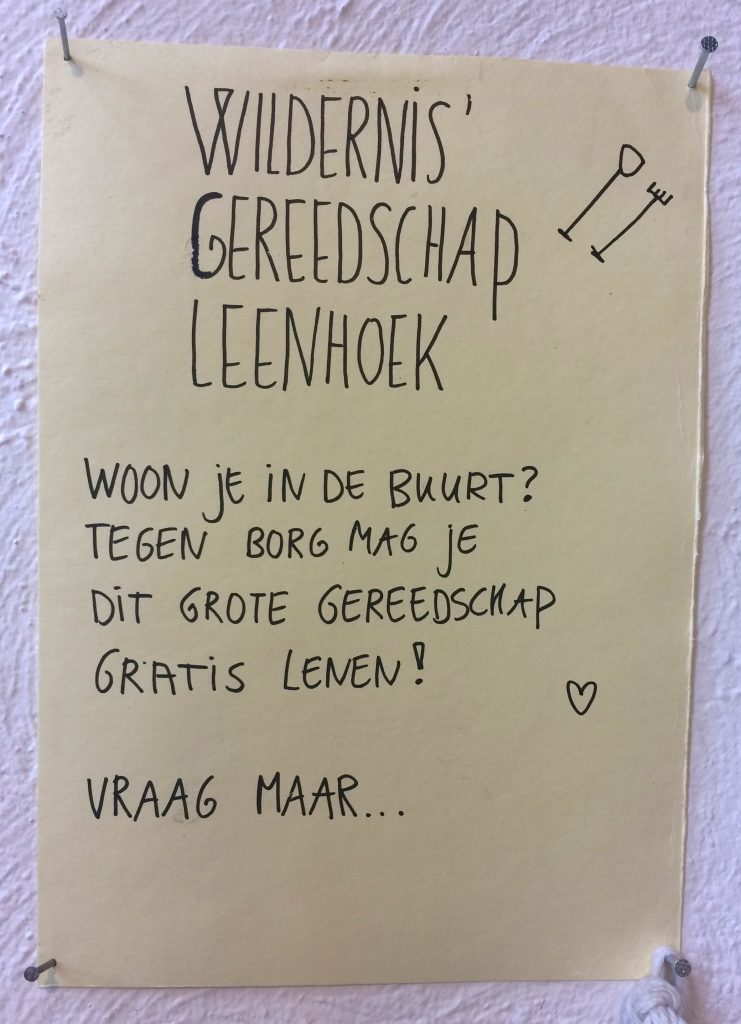 WILDERNIS'
GEREEDSCHAP
LEENHOEK
WOON JE IN DE BUURT?
TEGEN BORG MAG JE
DIT GROTE GEREEDSCHAP
GRATIS LENEN!
VRAAG MAAR...